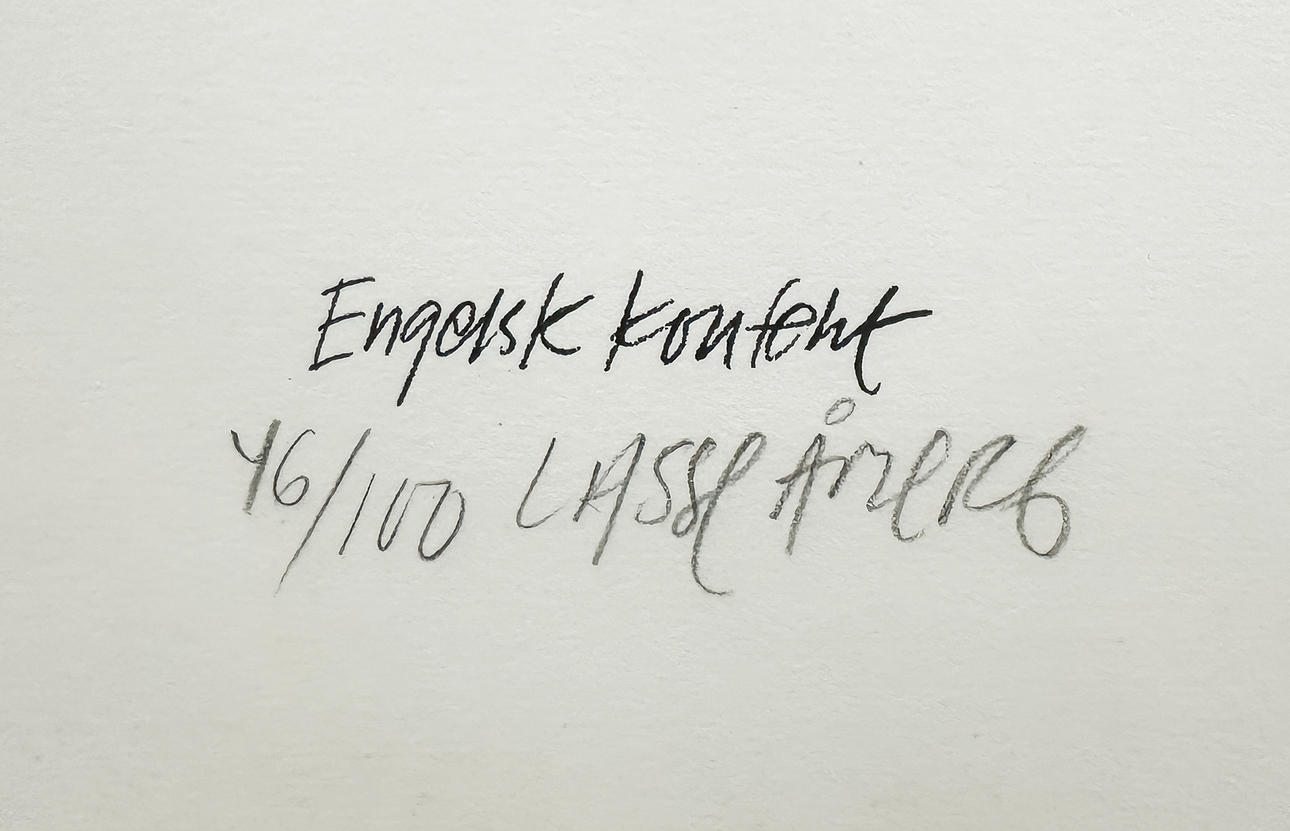 Engelsk konfekt
46/100 LASSE ÅBERG